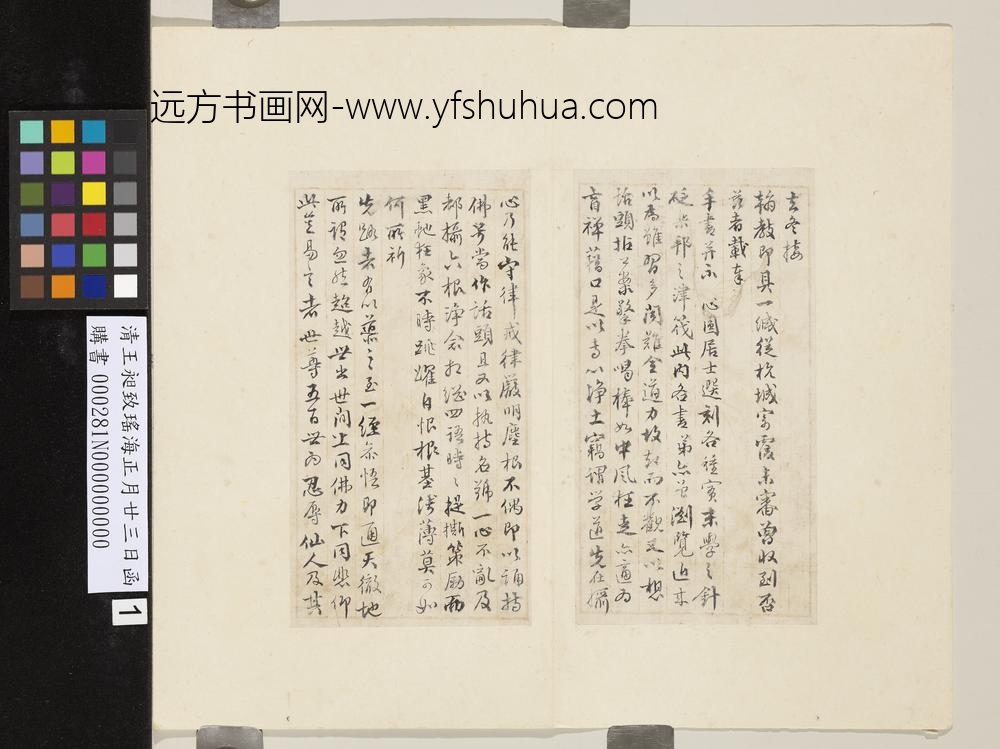 远方书画网-www.yfshuhua.com
清王昶致瑤海正月廿三日函
購書 000281N000000000
1
去冬接
翰教即具一緘從杭城寄覆未審曾收到否
茲者載奉
手書并示 心園居士選刻各種實末學之針
砭 邦之津筏此內各書弟亦曾瀏覽近來
以為雖習多聞難全道力故 而不觀 以想
話頭拈公案擎拳喝棒如中風狂走亦適為
盲禪藉口是以專心淨土竊謂学道先在攝
心乃能守律戒律嚴明塵根不偶即以誦持
佛号當作話頭且又以執持名號一心不亂及
都攝六根淨念相繼四語時時提撕策勵而
黑地狂象不時跳躍自恨根基淺薄莫可如
何所祈
先路者有以藥之至一經參悟即通天徹地
所謂忽然超越世出世间上同佛力下同悲仰
此豈易言者 世尊五百世為忍辱仙人及其